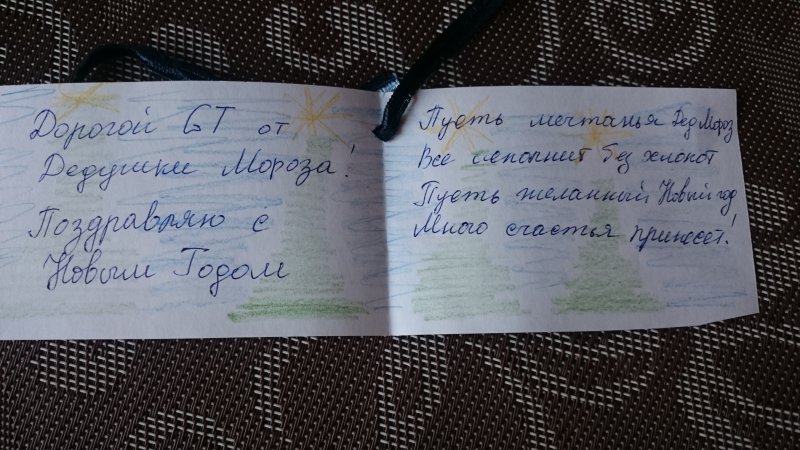 Дорогой GT от
Дедушки Мороза!
Поздравляю с
Новым Годом
Пусть мечтанья Дед Мороз
Все исполнит без хлопот
Пусть желанный Новый год
Много счастья принесет!